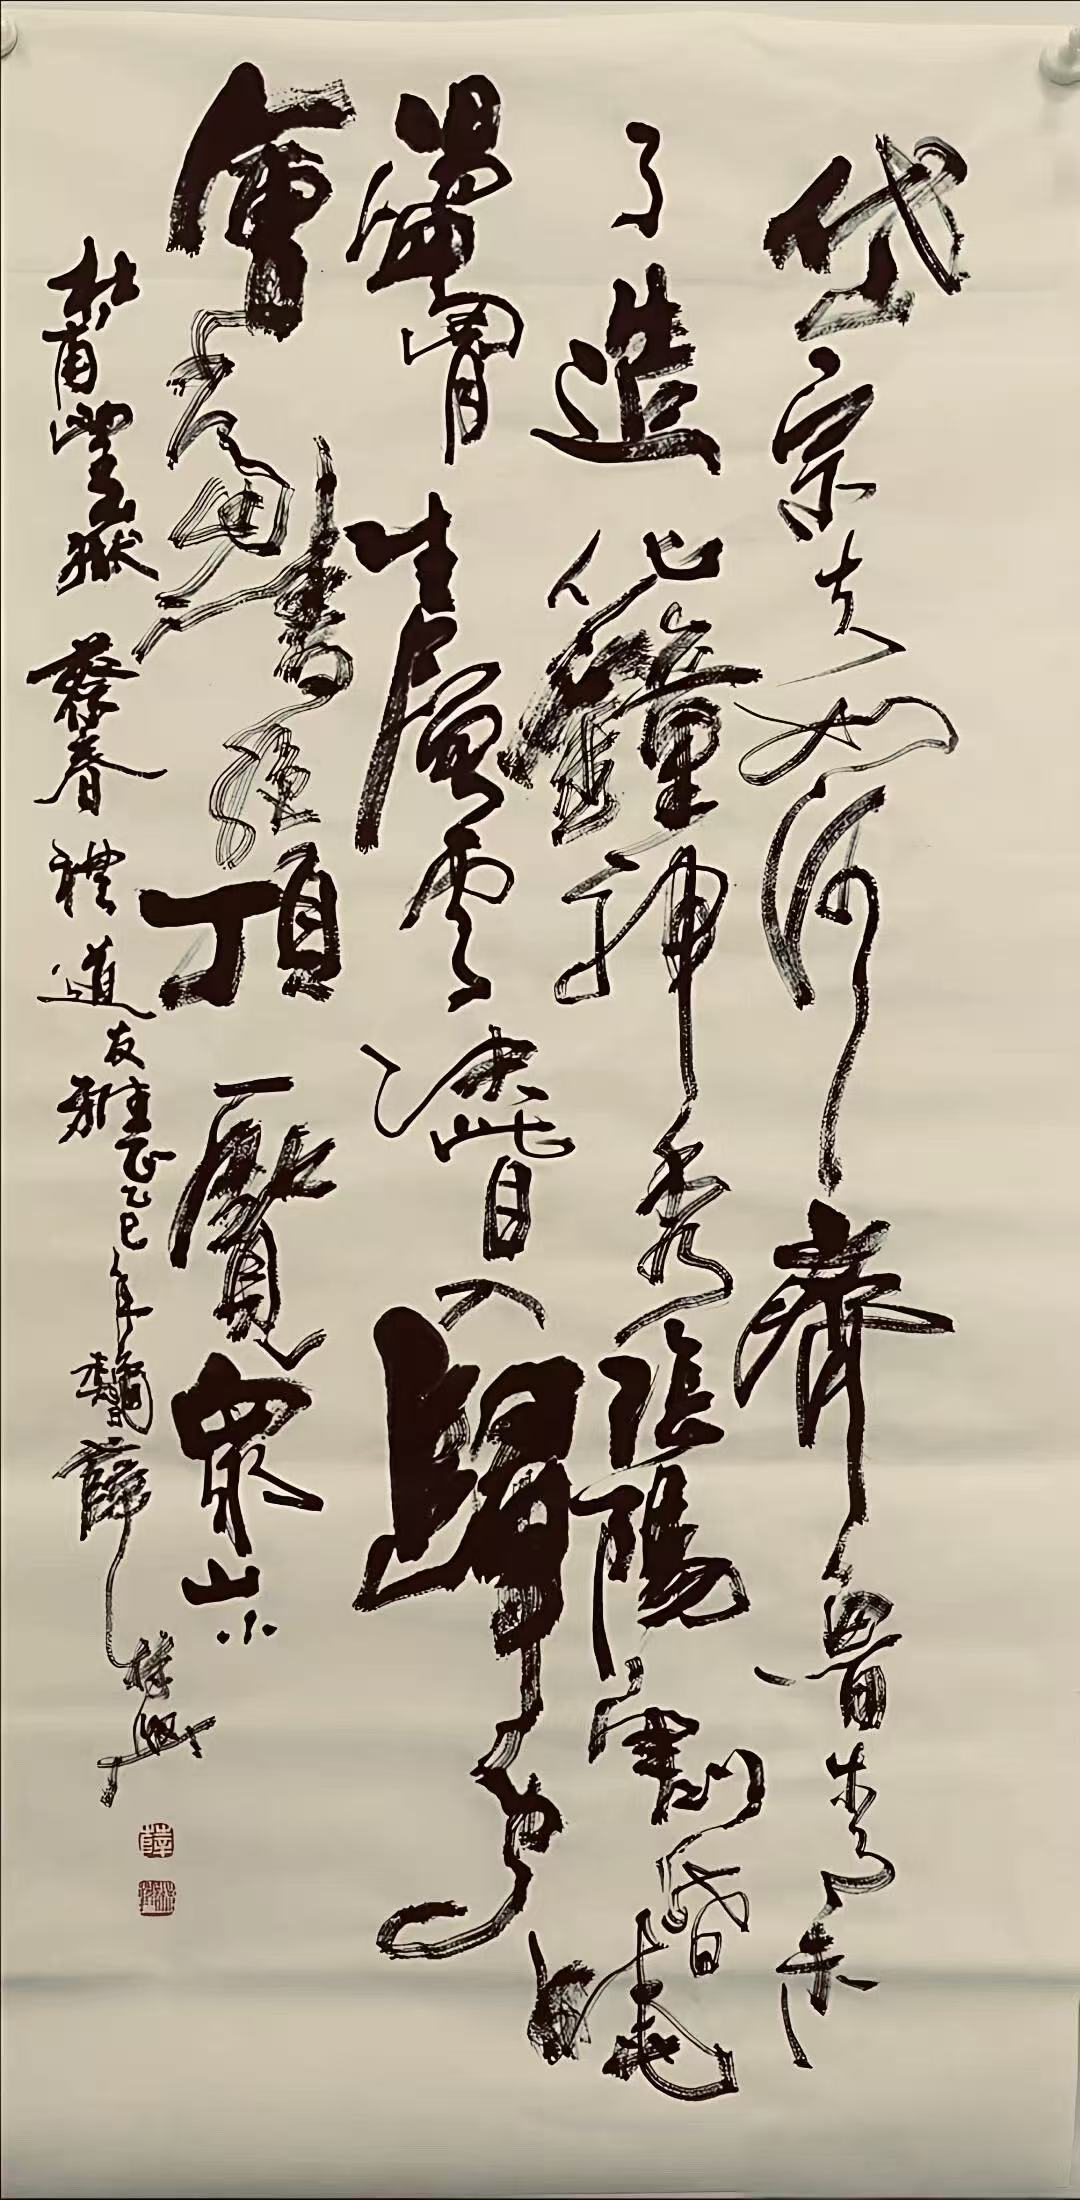 岱宗夫如何齊魯青未
了造化鐘神秀陰陽割昏曉
盪胷生層雲決眥入歸鳥
會當凌絕頂一覽眾山小
杜甫望嶽 蔡春禮道友雅正乙巳年薛